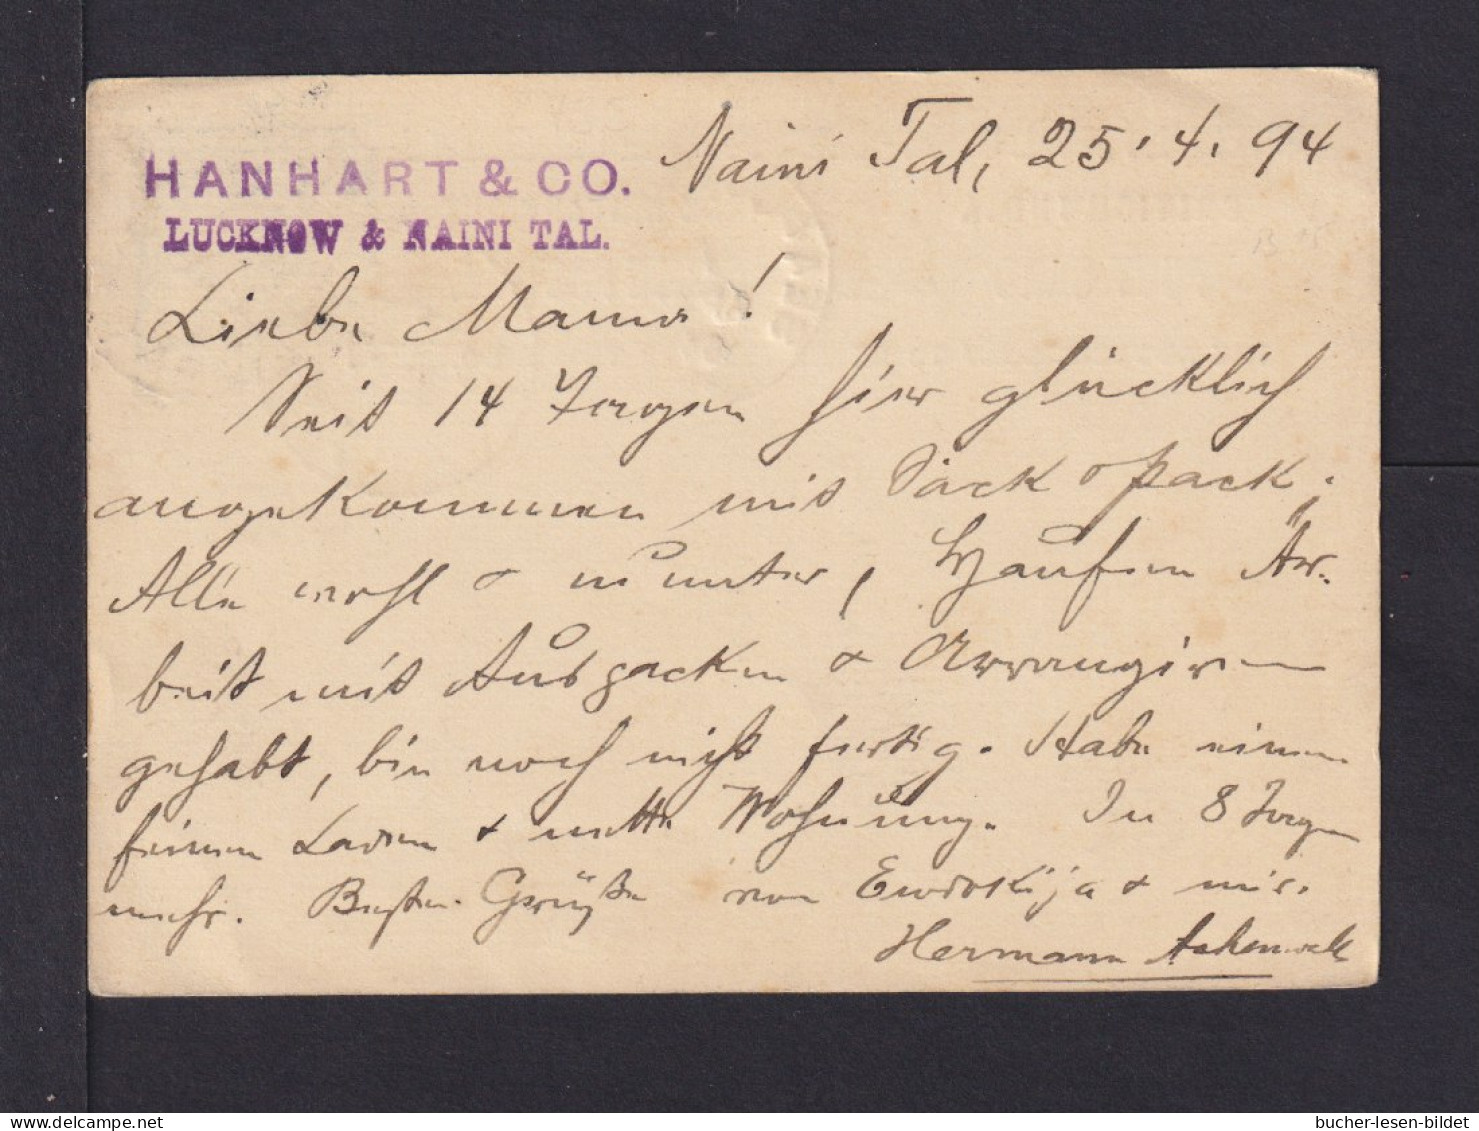 HANHART & CO.
LUCKNOW & NAINI TAL.
Naini Tal, 25.4.94
Liebe Mama!
Seit 14 Tagen hier glücklich
angekommen mit Sack & Pack;
Alle wohl & munter, Haufen Ar-
beit mit Auspacken & Arrangiren
gehabt, bin noch nicht fertig. Habe einen
feinen Laden & nette Wohnung. In 8 Tagen
mehr. Besten Grüße von & mir.
Hermann
bucher-lesen-bildet